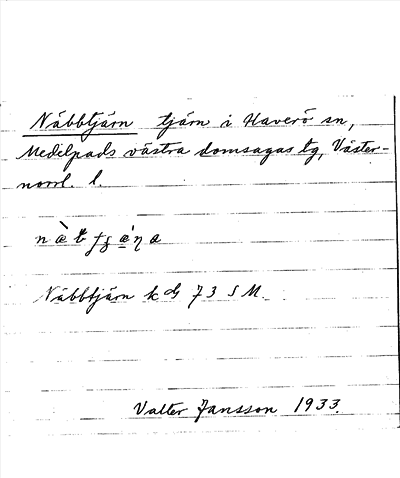 Näbbtjärn tjärn i Haverö sn,
Medelpads västra domsagas tg, Väster-
norrl. l.
Näbbtjärn k 73 S M.
Valter Jansson 1933.